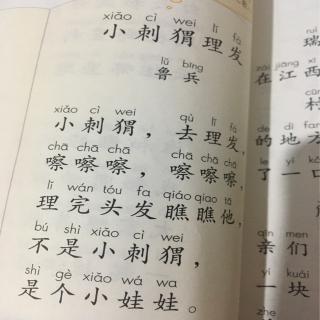 xiǎo cì wei lǐ fà
小刺猬理发
lǔ bīng
鲁兵
xiǎo cì wei qù lǐ fà
小刺猬，去理发，
chā chā chā chā chā chā
嚓嚓嚓，嚓嚓嚓，
lǐ wán tóu fa qiáo qiao tā
理完头发瞧瞧他，
bú shì xiǎo cì wei
不是小刺猬，
shì gè xiǎo wá wa
是个小娃娃。
ruì
瑞
zài jiāng xī
在江西
cūn
村
de dì fang
的地方
le yì kǒu
了一口
qīn men
亲们
yí kuài
一块